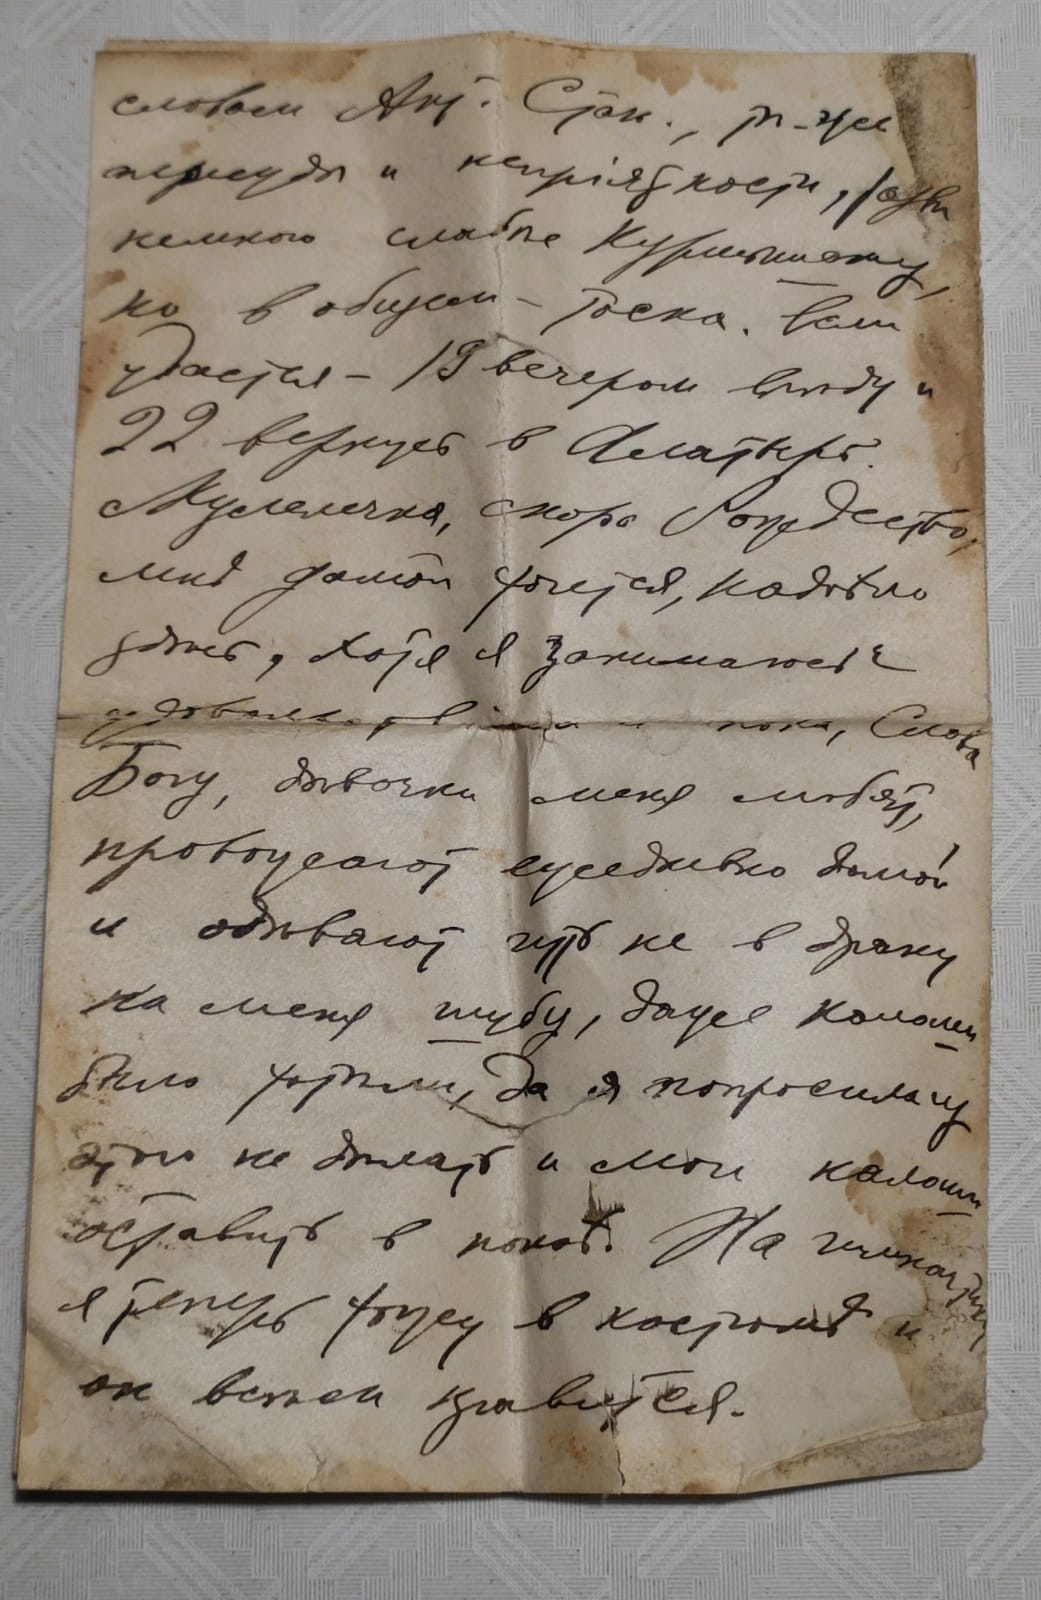 словам Ант. Стан., тѣ-же
пересуды и непріятности, разви
немного слабѣе Курмышаку,
но в общем - тоска. Если
удастся - 19 вечером выѣду и
22 вернусь в Алатырь.
Мусенечка, скоро Рождество,
мнѣ домой хочется, надоѣло
здѣсь, хотя я занимаюсь с
удовольствіем и пока, Слава
Богу, дѣвочки меня любят,
провожают ежедневно домой
и одѣвают чуть не в драку
на меня шубу, даже калоши
было хотѣли, да я попросила их
этого не дѣлать и мои калоши
оставить в покоѣ. На гимнастику
я теперь хожу в костюмѣ и
он всѣм нравится.